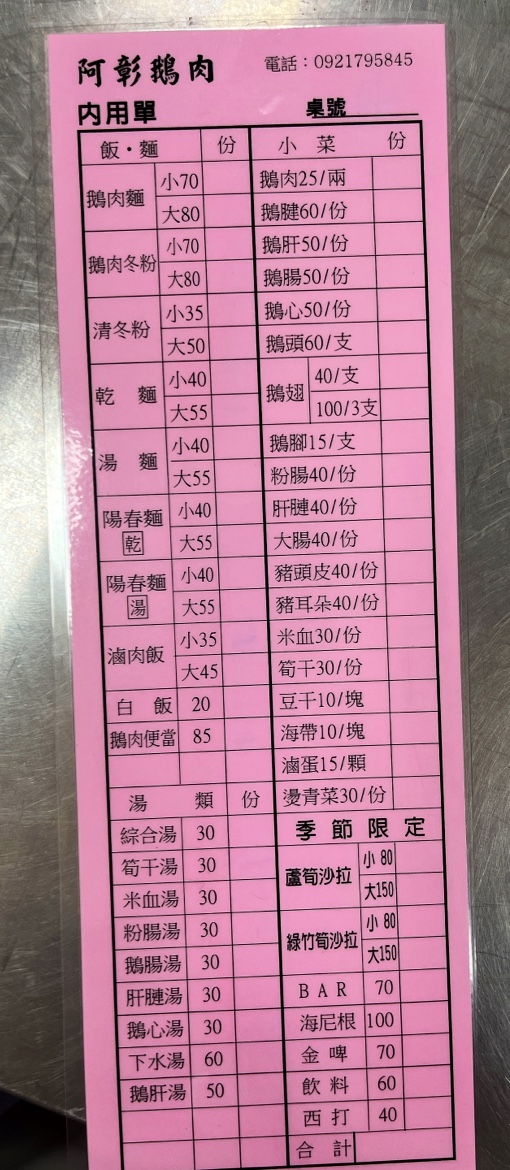 阿彰鵝肉 電話：0921795845
內用單 桌號
飯・麵 份
鵝肉麵 小70
大80
鵝肉冬粉 小70
大80
清冬粉 小35
大50
乾麵 小40
大55
湯麵 小40
大55
陽春麵 乾 小40
大55
陽春麵 湯 小40
大55
滷肉飯 小35
大45
白飯 20
鵝肉便當 85
湯類 份
綜合湯 30
筍干湯 30
米血湯 30
粉腸湯 30
鵝腸湯 30
肝膁湯 30
鵝心湯 30
下水湯 60
鵝肝湯 50
小菜 份
鵝肉25/兩
鵝腱60/份
鵝肝50/份
鵝腸50/份
鵝心50/份
鵝頭60/支
鵝翅 40/支
100/3支
鵝腳15/支
粉腸40/份
肝膁40/份
大腸40/份
豬頭皮40/份
豬耳朵40/份
米血30/份
筍干30/份
豆干10/塊
海帶10/塊
滷蛋15/顆
燙青菜30/份
季節限定
蘆筍沙拉 小80
大150
綠竹筍沙拉 小80
大150
BAR 70
海尼根 100
金啤 70
飲料 60
西打 40
合計